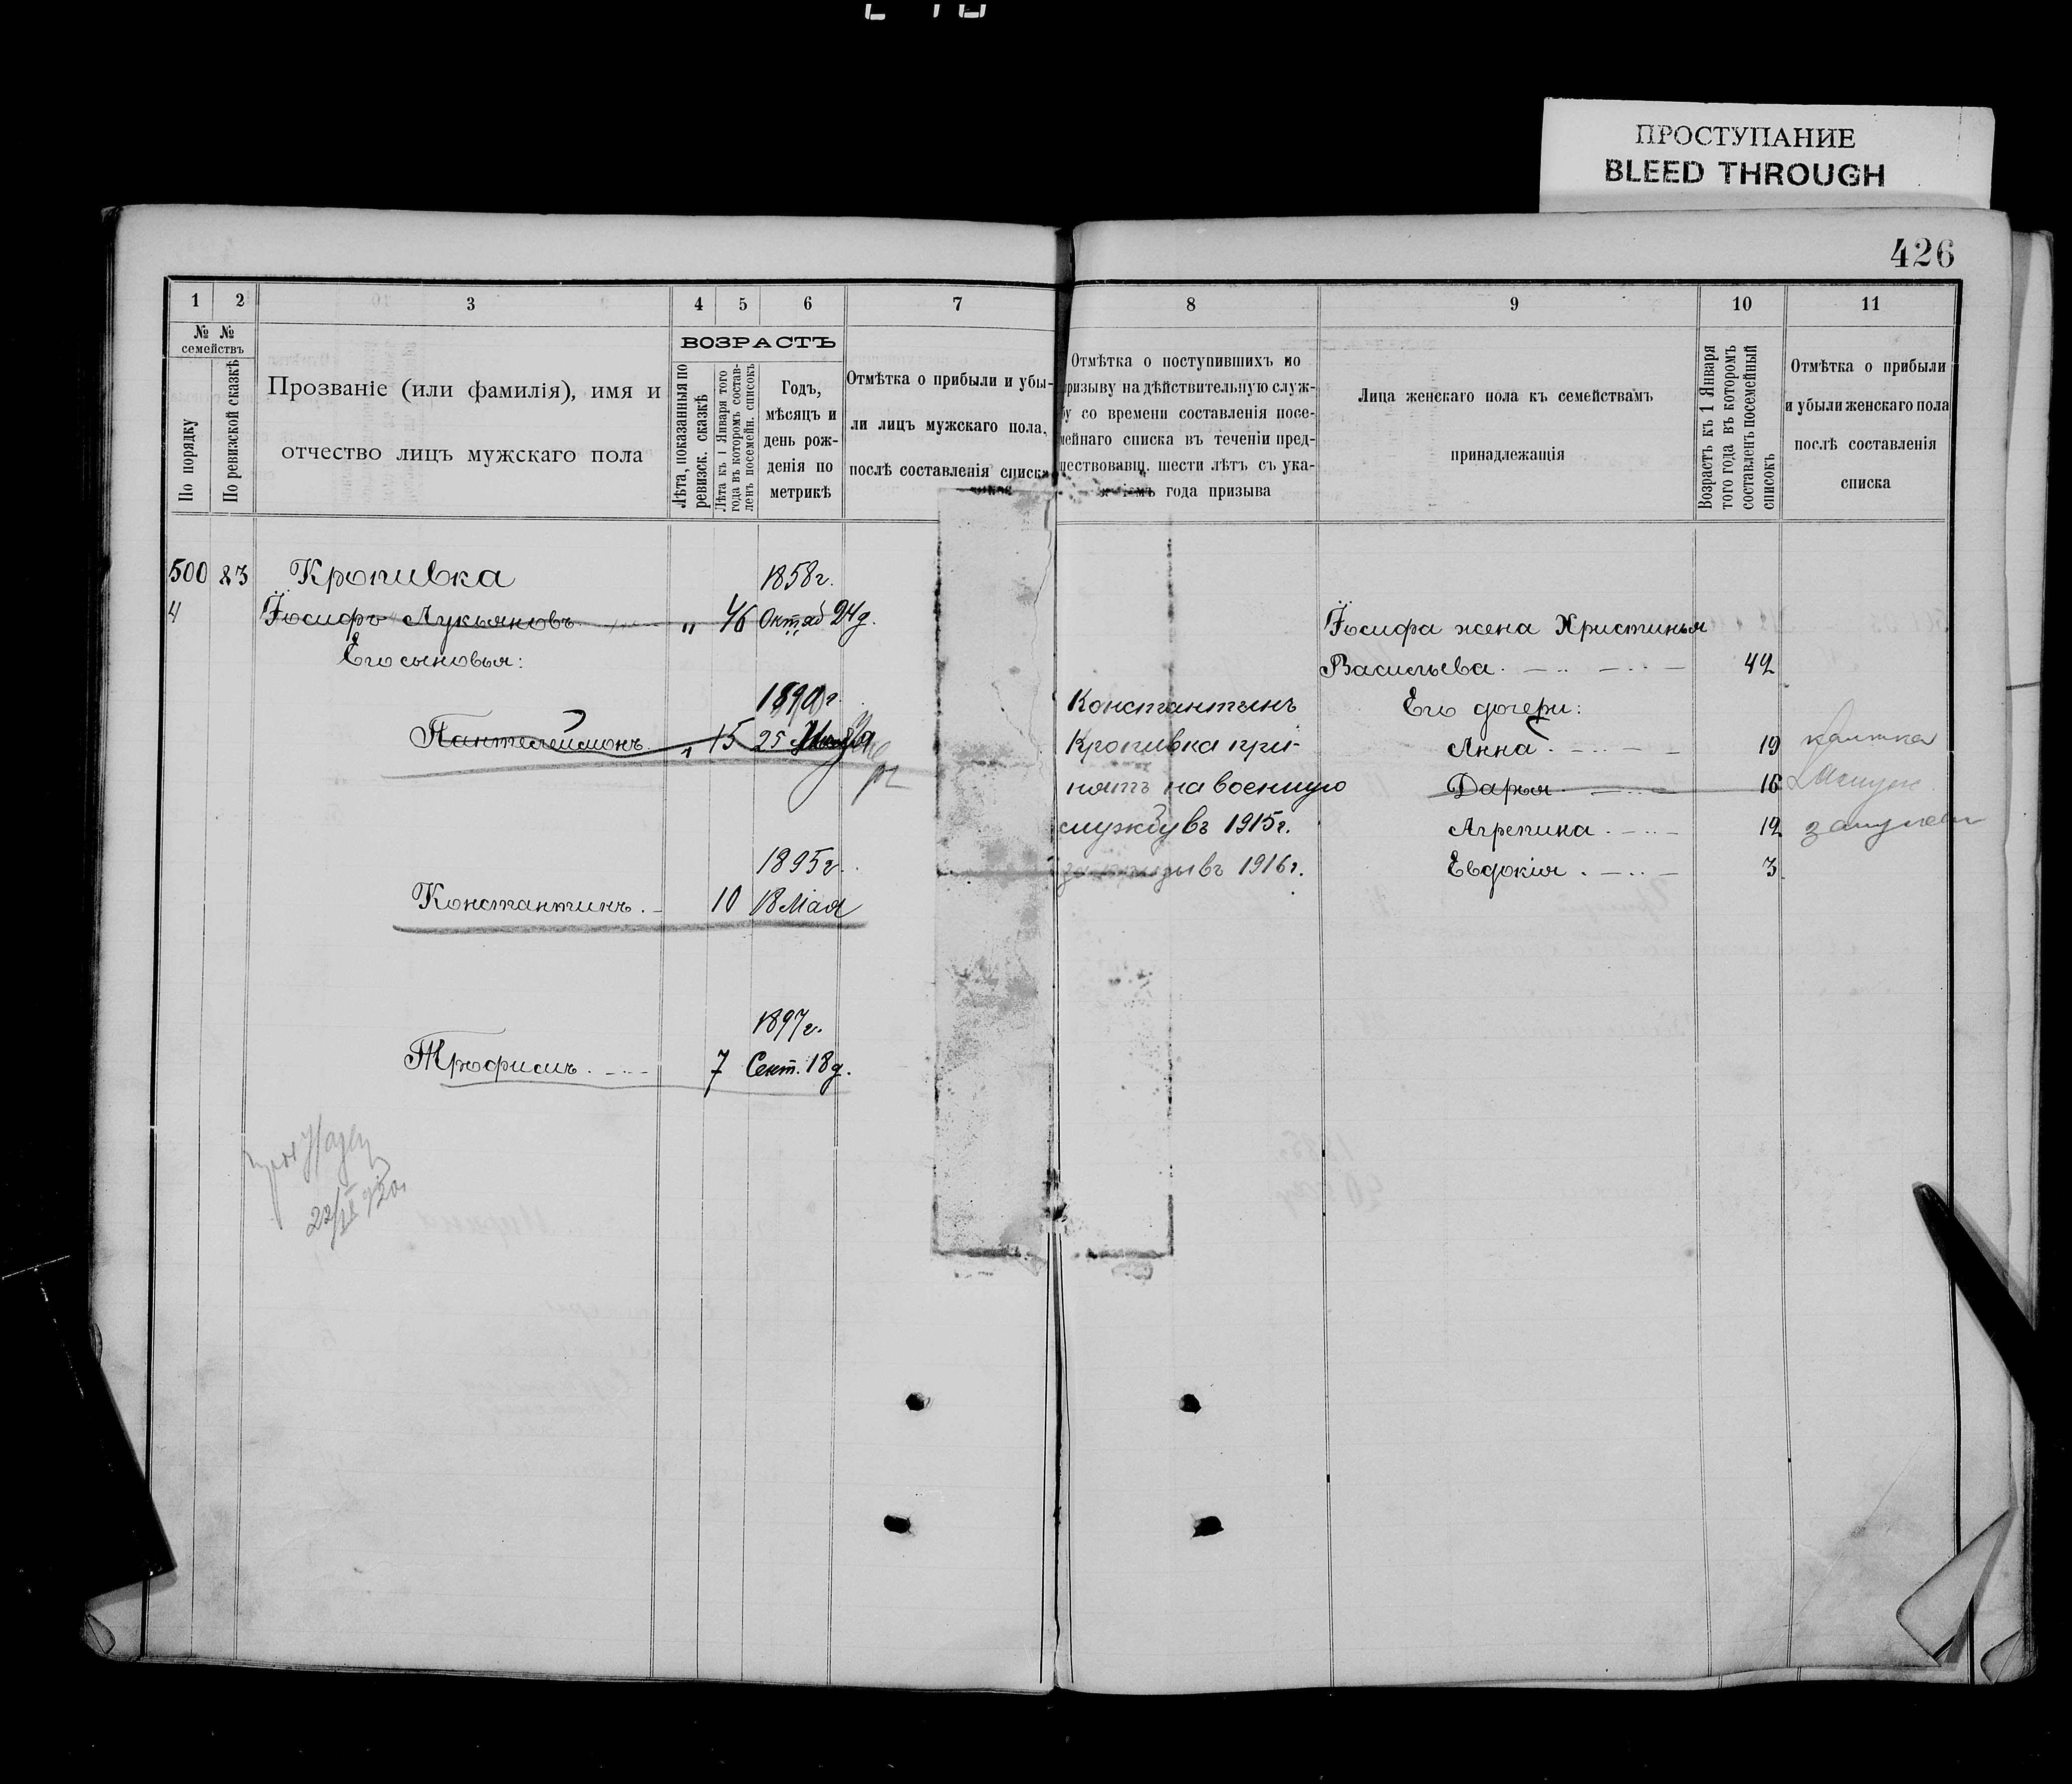 ПРОСТУПАНИЕ
BLEED THROUGH
426
1 2 3 4 5 6 7 8 9 10 11
№ №
семействъ
По порядку
По ревизской сказкѣ
Прозваніе (или фамилія), имя и
отчество лицъ мужскаго пола
ВОЗРАСТЪ
Лѣта, показанныя по
ревизск. сказкѣ
Лѣта къ 1 Января того
года въ которомъ состав-
ленъ посемейн. списокъ
Годъ,
мѣсяцъ и
день рож-
денія по
метрикѣ
Отмѣтка о прибыли и убы-
ли лицъ мужскаго пола,
послѣ составленія списка
Отмѣтка о поступившихъ по
призыву на дѣйствительную служ-
бу со времени составленія посе-
мейнаго списка въ теченіи пред-
шествовавш. шести лѣтъ съ ука-
года призыва
Лица женскаго пола къ семействамъ
принадлежащія
Возрастъ къ 1 Января
того года въ которомъ
составленъ посемейный
списокъ
Отмѣтка о прибыли
и убыли женскаго пола
послѣ составленія
списка
500 83 Кропивка 1858г.
4 Іосифъ Лукьяновъ " 46 Октяб 24д.
Его сыновья:
1890г.
Пантелеймонъ " 15 25
1895г.
Константинъ 10 18 Мая
1897г.
Трофимъ 7 Сент. 18д.
Константинъ
Кропивка при-
нятъ на военную
службу въ 1915г.
въ 1916г.
Іосифа жена Христинья
Васильева 42
Его дочери:
Анна 19
Дарья 16
Агрепина 12
Евдокія 3